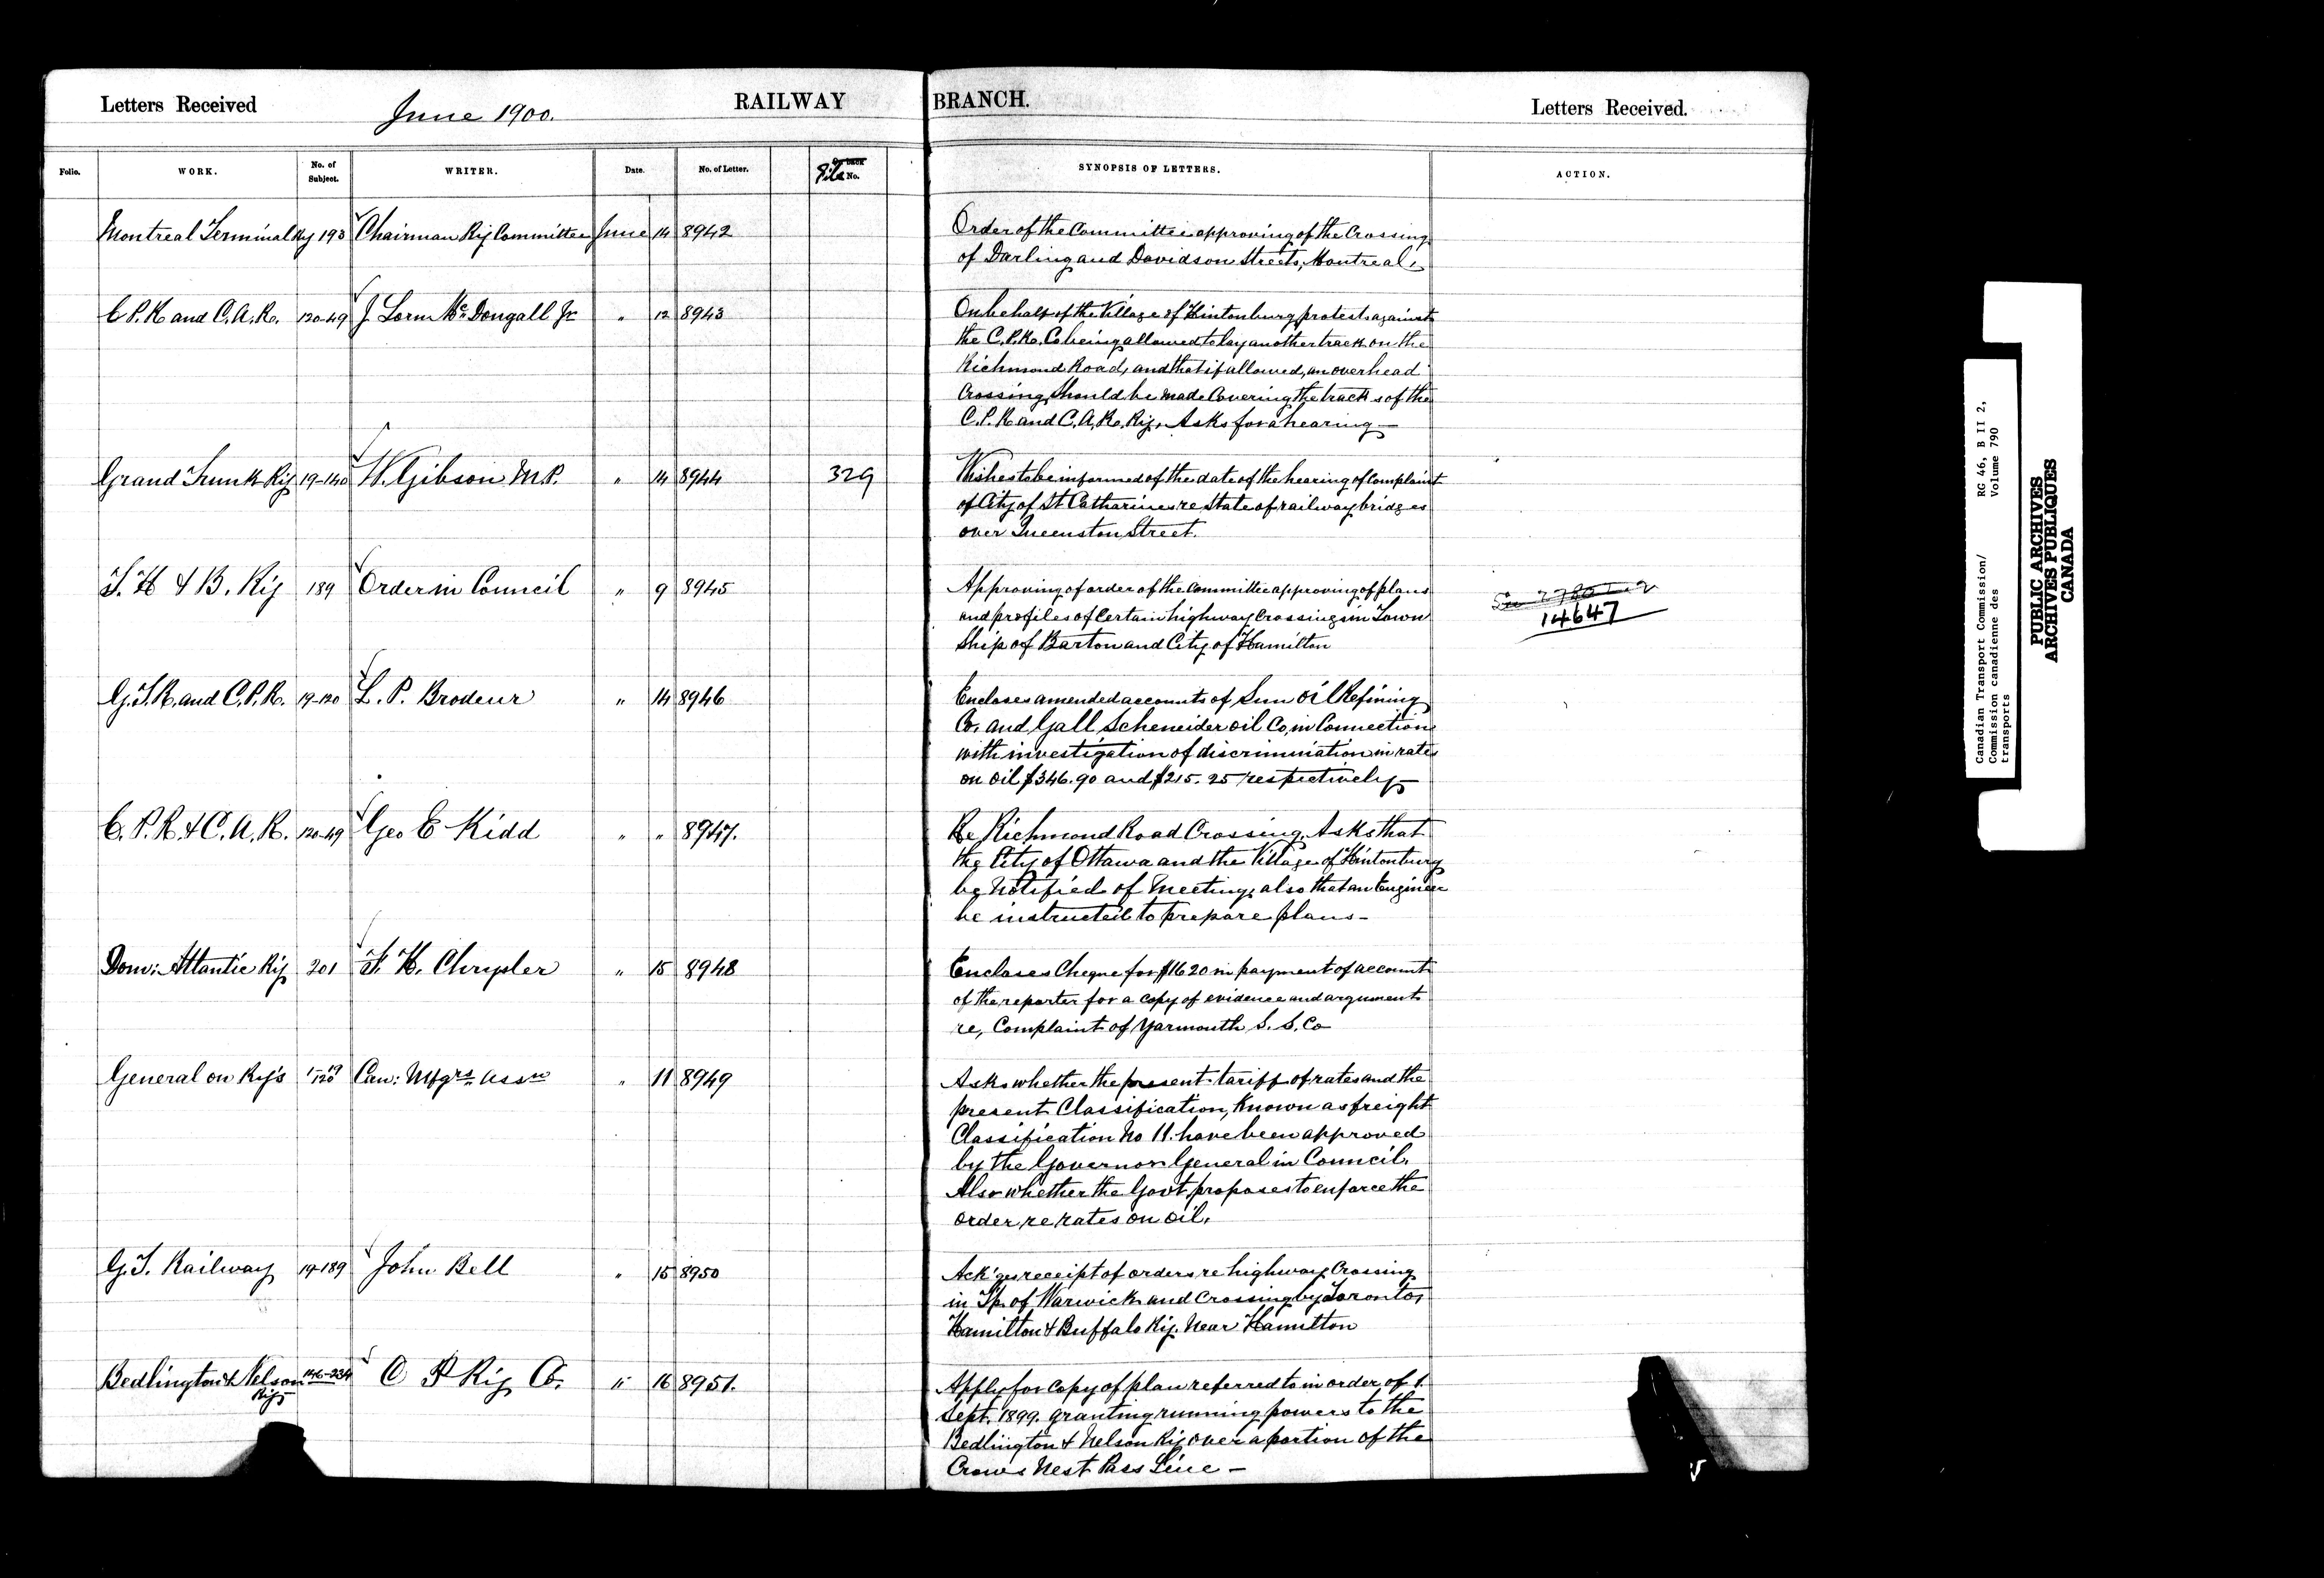 Letters Received
June 1900.
RAILWAY
BRANCH.
Letters Received.
Folio.
WORK.
No. of Subject.
WRITER.
Date.
No. of Letter.
File No.
SYNOPSIS OF LETTERS.
ACTION.
Montreal Terminal Ry 193 Chairman Ry Committee June 14 8942
Order of the Committee approving of the Crossing
of Darling and Davidson Streets, Montreal.
C P. R and C. A. R. 120-49 J Lorn McDongall Jr " 12 8943
On behalf of the Village of Hintonburg protests against
the C. P. R. Co being allowed to lay another track on the
Richmond Road, and that if allowed, an overhead
Crossing should be made Covering the tracks of the
C. P. R and C. A, R. Ry. Asks for a hearing —
Grand Trunk Ry 19-140 W. Gibson M.P. " 14 8944 329
Wishes to be informed of the date of the hearing of Complaint
of City of St Catharines re State of railway bridges
over Queenston Street.
T. H & B. Ry 189 Order in Council " 9 8945
Approving of order of the Committee approving of plans
and profiles of Certain highway Crossings in Town
Ship of Barton and City of Hamilton
14647
G. T. R. and C. P. R. 19-120 L. P. Brodeur " 14 8946
Encloses amended accounts of Sun Oil Refining
Co. and Gall Scheneider oil Co, in Connection
with investigation of discrimination in rates
on oil $346.90 and $215.25 respectively —
C. P. R. & C. A, R. 120-49 Geo E Kidd " " 8947.
Re Richmond Road Crossing. Asks that
the City of Ottawa and the Village of Hintonburg
be Notified of Meeting, also that an Engineer
be instructed to prepare plans —
Dom: Atlantic Ry 201 F. H. Chrysler " 15 8948
Encloses Cheque for $16 20 in payment of account
of the reporter for a copy of evidence and argument
re, Complaint of Yarmouth S. S. Co
General on Ry's 1-19 120 Can: Mfgrs Assn " 11 8949
Asks whether the present tariff of rates and the
present Classification, Known as freight
Classification No 11. have been approved
by the Governor General in Council.
Also whether the Govt, proposes to enforce the
order re rates on oil.
G. T. Railway 19-189 John Bell " 15 8950
Ack'ges receipt of orders re highway Crossing
in Tp. of Warwick and Crossing by Toronto,
Hamilton & Buffalo Ry. Near Hamilton
Bedlington & Nelson 146-234 C P Ry Co. " 16 8951.
Ry
Apply for Copy of plan referred to in order of 1.
Sept. 1899. granting running powers to the
Bedlington & Nelson Ry over a portion of the
Crows Nest Pass Line —
Canadian Transport Commission/
Commission canadienne des
transports
RG 46, B II 2,
Volume 790
PUBLIC ARCHIVES
ARCHIVES PUBLIQUES
CANADA